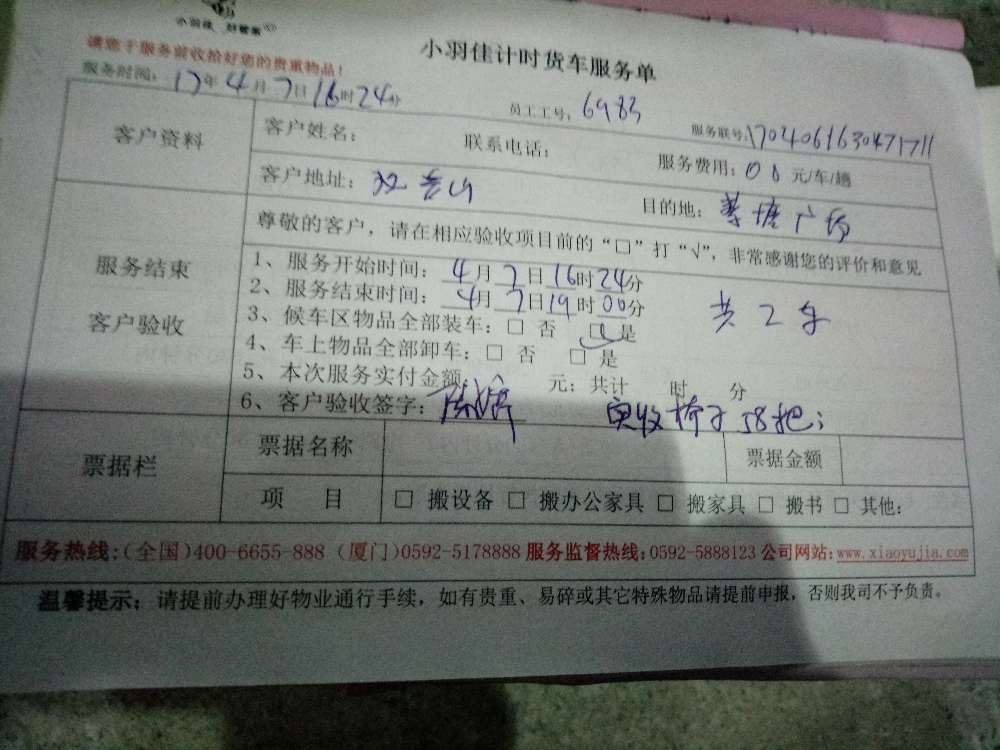 小羽佳 好管家
小羽佳计时货车服务单
请您于服务前收拾好您的贵重物品!
服务时间: 17年4月7日16时24分 员工工号: 6983 服务联号:
客户资料 客户姓名: 联系电话: 服务费用: 元/车/趟
客户地址: 目的地: 广场
服务结束
客户验收
尊敬的客户，请在相应验收项目前的“□”打“√”，非常感谢您的评价和意见
1、服务开始时间: 4月7日16时24分
2、服务结束时间: 4月7日19时00分 共2车
3、候车区物品全部装车: □ 否 □ 是
4、车上物品全部卸车: □ 否 □ 是
5、本次服务实付金额 元; 共计 时 分
6、客户验收签字: 实收椅子58把;
票据栏 票据名称 票据金额
项 目 □ 搬设备 □ 搬办公家具 □ 搬家具 □ 搬书 □ 其他:
服务热线:(全国)400-6655-888 (厦门)0592-5178888 服务监督热线:0592-5888123 公司网站:www.xiaoyujia.com
温馨提示: 请提前办理好物业通行手续，如有贵重、易碎或其它特殊物品请提前申报，否则我司不予负责。